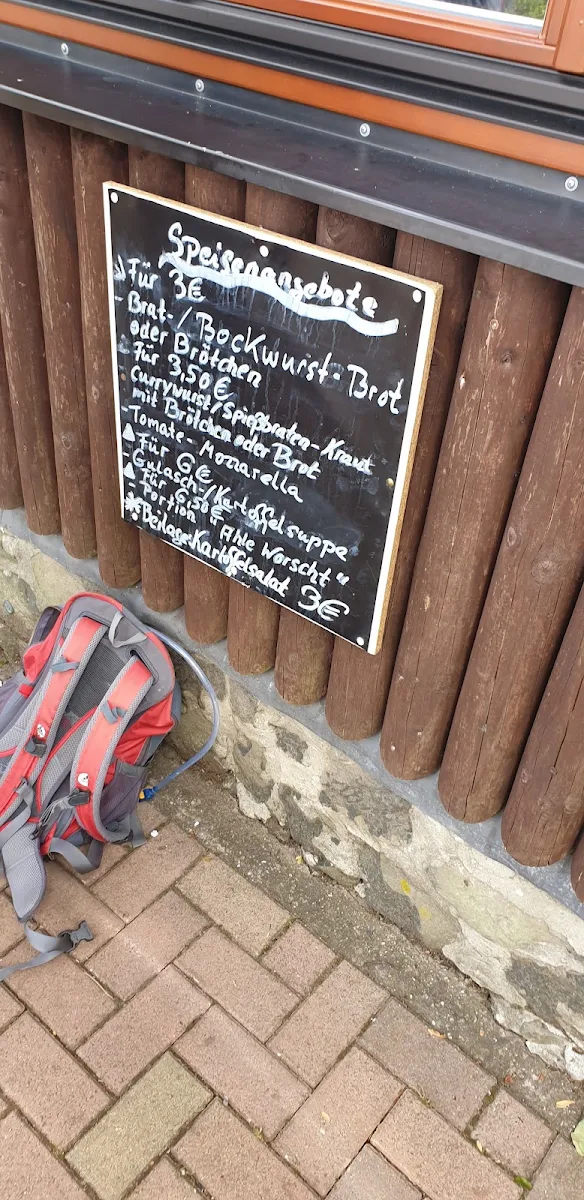 Speisenangebote
Für 3€
- Brat-/Bockwurst-Brot
oder Brötchen
Für 3,50€
Currywurst/Spießbraten-Kraut
mit Brötchen oder Brot
- Tomate-Mozzarella
Für 6€
- Gulasch-/Kartoffelsuppe
Für 6,50€
- Portion "Ahle Worscht"
Beilage: Kartoffelsalat 3€